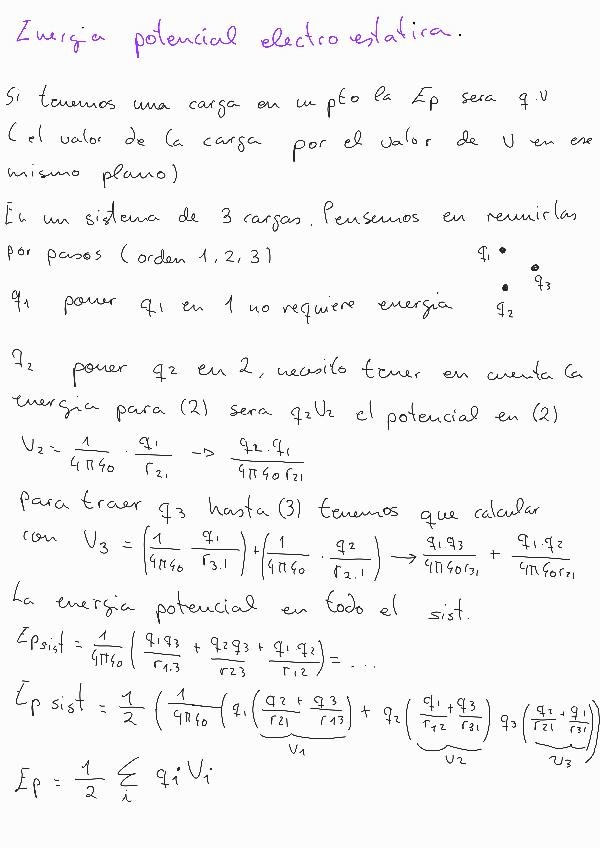 Energia potencial electro estatica.
Si tenemos una carga en un pto la Ep sera q.v
(el valor de la carga por el valor de V en ese
mismo plano)
En un sistema de 3 cargas. Pensemos en reunirlas
por pasos (orden 1, 2, 3)
q1
q3
q2
q1 poner q1 en 1 no requiere energia
q2 poner q2 en 2, necesito tener en cuenta la
energia para (2) sera q2V2 el potencial en (2)
V2 = 1/4πε0 · q1/r21 -> q2.q1/4πε0r21
para traer q3 hasta (3) tenemos que calcular
con V3 = (1/4πε0 q1/r3.1) + (1/4πε0 · q2/r2.1) -> q1q3/4πε0r31 + q1.q2/4πε0r21
La energia potencial en todo el sist.
Epsist = 1/4πε0 (q1q3/r1.3 + q2q3/r23 + q1.q2/r12) = ...
Ep sist = 1/2 (1/4πε0 (q1(q2/r21 + q3/r13) + q2(q1/r12 + q3/r31) q3(q2/r21 + q1/r31))
V1 V2 V3
Ep = 1/2 Σi qi Vi